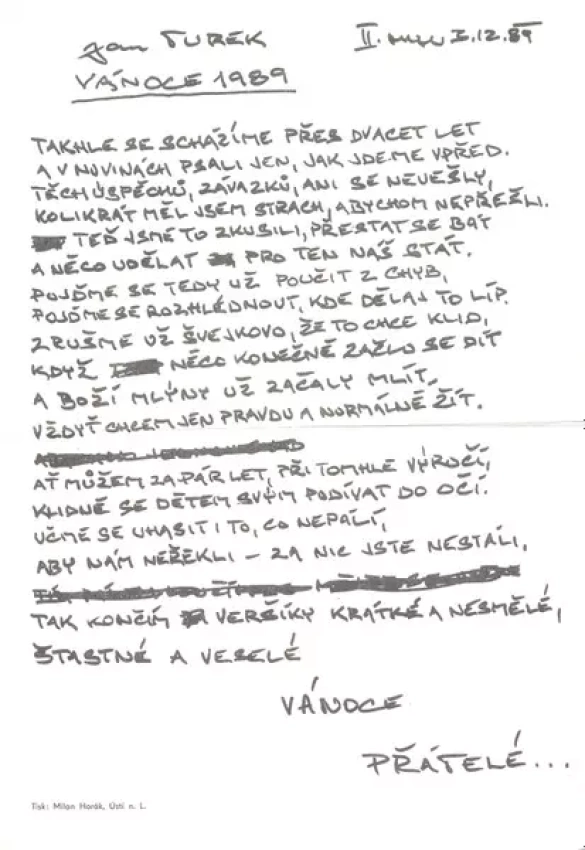 Jan TUREK
II. 3.12.89
VÁNOCE 1989
TAKHLE SE SCHÁZÍME PŘES DVACET LET
A V NOVINÁCH PSALI JEN, JAK JDEME VPŘED.
TĚCH ÚSPĚCHŮ, ZÁVAZKŮ, ANI SE NEVEŠLY,
KOLIKRÁT MĚL JSEM STRACH, ABYCHOM NEPŘEŠLI.
TEĎ JSME TO ZKUSILI, PŘESTAT SE BÁT
A NĚCO UDĚLAT PRO TEN NÁŠ STÁT.
POJĎME SE TEDY UŽ POUČIT Z CHYB,
POJĎME SE ROZHLÉDNOUT, KDE DĚLAJ TO LÍP.
ZRUŠME UŽ ŠVEJKOVO, ŽE TO CHCE KLID,
KDYŽ NĚCO KONEČNĚ ZAČLO SE DÍT
A BOŽÍ MLÝNY UŽ ZAČALY MLÍT,
VŽDYŤ CHCEM JEN PRAVDU A NORMÁLNĚ ŽÍT.
AŤ MŮŽEM ZA PÁR LET, PŘI TOMHLE VÝROČÍ,
KLIDNĚ SE DĚTEM SVÝM PODÍVAT DO OČÍ.
UČME SE UHASIT I TO, CO NEPÁLÍ,
ABY NÁM NEŘEKLI – ZA NIC JSTE NESTÁLI,
TAK KONČÍM VERŠÍKY KRÁTKÉ A NESMĚLÉ,
ŠTASTNÉ A VESELÉ
VÁNOCE
PŘÁTELÉ...
Tisk: Milan Horák, Ústí n. L.